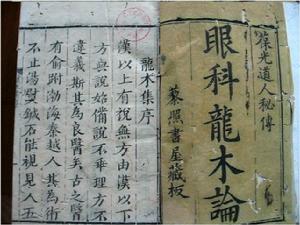 葆光道人秘傳
眼科龍木論
藜照書屋藏板
龍木集序
漢以上有說無方由漢以下
方與說始備說不乖理方不
違義斯其為良醫矣古之醫
有俞跗渤海秦越人其為術
不止湯熨鍼石能視見人五